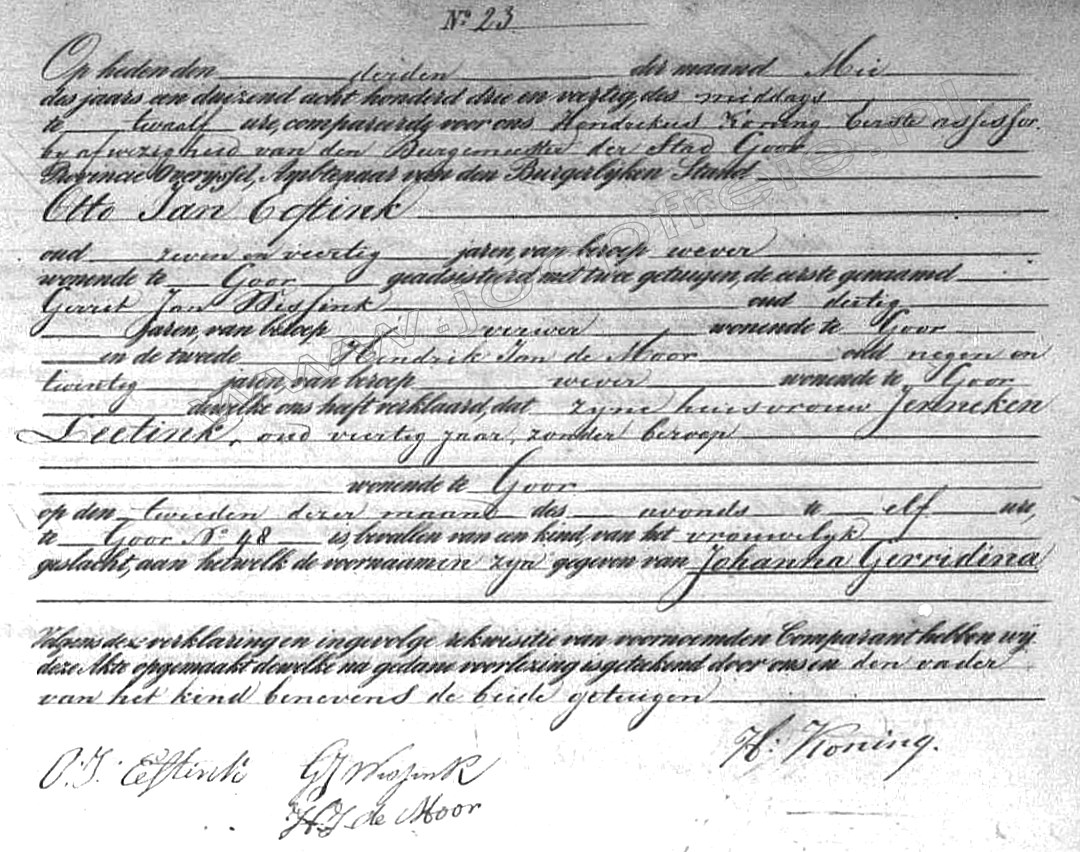 No. 23
Op heden den derden der maand Mei
des jaars een duizend acht honderd drie en veertig, des middags
te twaalf ure, compareerde voor ons Hendrikus Koning Eerste assessor
by afwezigheid van den Burgemeester der Stad Goor
Provincie Overyssel, Ambtenaar van den Burgerlijken Stand
Otto Jan Eeftink
oud zeven en viertig jaren, van beroep wever
wonende te Goor geadsisteerd, met twee getuigen, de eerste genaamd
Gerrit Jan Wissink oud dertig
jaren, van beroep verwer wonende te Goor
en de tweede Hendrik Jan de Moor oud negen en
twintig jaren, van beroep wever wonende te Goor
dewelke ons heeft verklaard, dat zyne huisvrouw Jenneken
Leetink, oud viertig jaar, zonder beroep
wonende te Goor
op den tweeden dezer maand des avonds te elf ure,
te Goor No. 48 is, bevallen van een kind, van het vrouwelyk
geslacht, aan hetwelk de voornaamen zyn gegeven van Johanna Gerridina
Volgens deze verklaring en ingevolge rekwisitie van voornoemden Comparant hebben wij
deze Akte opgemaakt dewelke na gedane voorlezing is geteekend door ons en den vader
van het kind benevens de beide getuigen
O: J: Eeftink GJ Wissink H: Koning.
H.J. de Moor